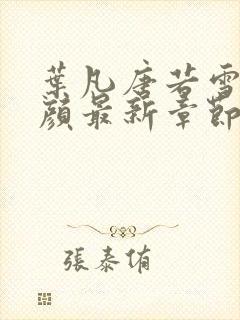 葉凡唐若雪
顔最新章節
張泰侑